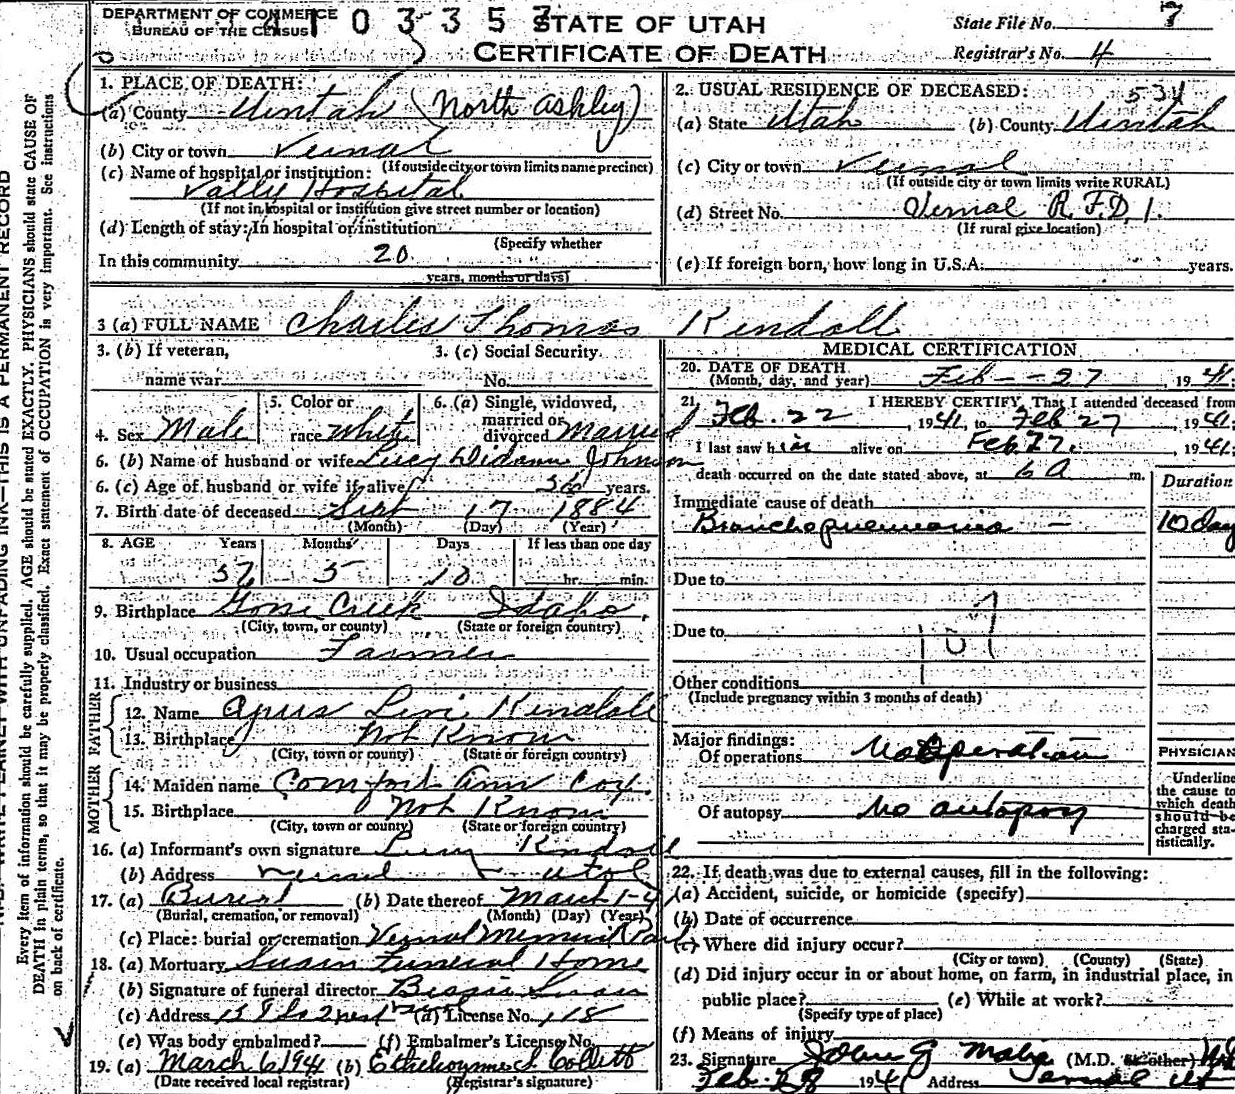 DEPARTMENT OF COMMERCE
BUREAU OF THE CENSUS
4 1 0 3 3 5 3
STATE OF UTAH
CERTIFICATE OF DEATH
State File No. 7
Registrar's No. 4
1. PLACE OF DEATH:
(a) County Uintah (North Ashley)
(b) City or town Vernal
(If outside city or town limits name precinct)
(c) Name of hospital or institution:
Vally Hospital
(If not in hospital or institution give street number or location)
(d) Length of stay: In hospital or institution
(Specify whether
In this community 20
years, months or days)
2. USUAL RESIDENCE OF DECEASED: 534
(a) State Utah (b) County Uintah
(c) City or town Vernal
(If outside city or town limits write RURAL)
(d) Street No. Vernal R.F.D. 1.
(If rural give location)
(e) If foreign born, how long in U.S.A. years.
3 (a) FULL NAME Charles Thomas Kendall
3. (b) If veteran,
name war
3. (c) Social Security
No.
4. Sex Male
5. Color or
race white
6. (a) Single, widowed,
married or
divorced Married
6. (b) Name of husband or wife Lucy Johnson
6. (c) Age of husband or wife if alive years.
7. Birth date of deceased Sept 17 1884
(Month) (Day) (Year)
8. AGE Years Months Days If less than one day
56 5 10 hr. min.
9. Birthplace Gose Creek Idaho
(City, town, or county) (State or foreign country)
10. Usual occupation Farmer
11. Industry or business
FATHER
12. Name Cyrus Levi Kendall
13. Birthplace Not Known
(City, town or county) (State or foreign country)
MOTHER
14. Maiden name Comfort Ann Coy.
15. Birthplace Not Known
(City, town or county) (State or foreign country)
16. (a) Informant's own signature Lucy Kendall
(b) Address Vernal Utah
17. (a) Burial (b) Date thereof March 1-41
(Burial, cremation, or removal) (Month) (Day) (Year)
(c) Place: burial or cremation Vernal Memorial Park
18. (a) Mortuary Swain Funeral Home
(b) Signature of funeral director Swain
(c) Address (d) License No. 118
(e) Was body embalmed? (f) Embalmer's License No.
19. (a) March 6, 1941 (b) Collett
(Date received local registrar) (Registrar's signature)
MEDICAL CERTIFICATION
20. DATE OF DEATH
(Month, day, and year) Feb - - 27, 1941;
21. I HEREBY CERTIFY, That I attended deceased from
Feb. 22, 1941, to Feb 27, 1941;
I last saw him alive on Feb 27, 1941;
death occurred on the date stated above, at 6 A m.
Duration
Immediate cause of death
Bronchopneumonia - 10 day
Due to
Due to
107
Other conditions
(Include pregnancy within 3 months of death)
Major findings:
Of operations No Operation
Of autopsy No autopsy
PHYSICIAN
Underline
the cause to
which death
should be
charged sta-
tistically.
22. If death was due to external causes, fill in the following:
(a) Accident, suicide, or homicide (specify)
(b) Date of occurrence
(c) Where did injury occur?
(City or town) (County) (State)
(d) Did injury occur in or about home, on farm, in industrial place, in
public place? (e) While at work?
(Specify type of place)
(f) Means of injury
23. Signature John G (M.D. or other)
Feb. 28 1941 Address Vernal Ut
Every item of information should be carefully supplied. AGE should be stated EXACTLY. PHYSICIANS should state CAUSE OF
DEATH in plain terms, so that it may be properly classified. Exact statement of OCCUPATION is very important. See instructions
on back of certificate.